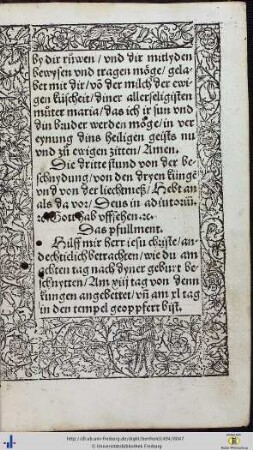 by dir rüwen / vnd dir mitlyden
bewysen vnd tragen möge / gela
bet mit dir / võ der milch der ewi
gen küscheit / diner allerseligisten
můter maria / das ich ir sun vnd
din brůder werden möge / in ver
eynung dins heiligen geists nu
vnd zů ewigen zitten / Amen.
Die dritte stund von der be
schnydung / von den dryen künge
vnd von der liechtmeß / Hebt an
als da vor / Deus in adiutoriũ
Gott hab vffsehen ꝛc.
Das pfulment.
Hilff mir herr iesu christe / an
dechtiklich betrachten / wie du am
achten tag nach dyner geburt be
schnytten / Am xiij tag von denn
kungen angebettet / vñ am xl tag
in den tempel geopffert bist.
© Universitätsbibliothek Freiburg